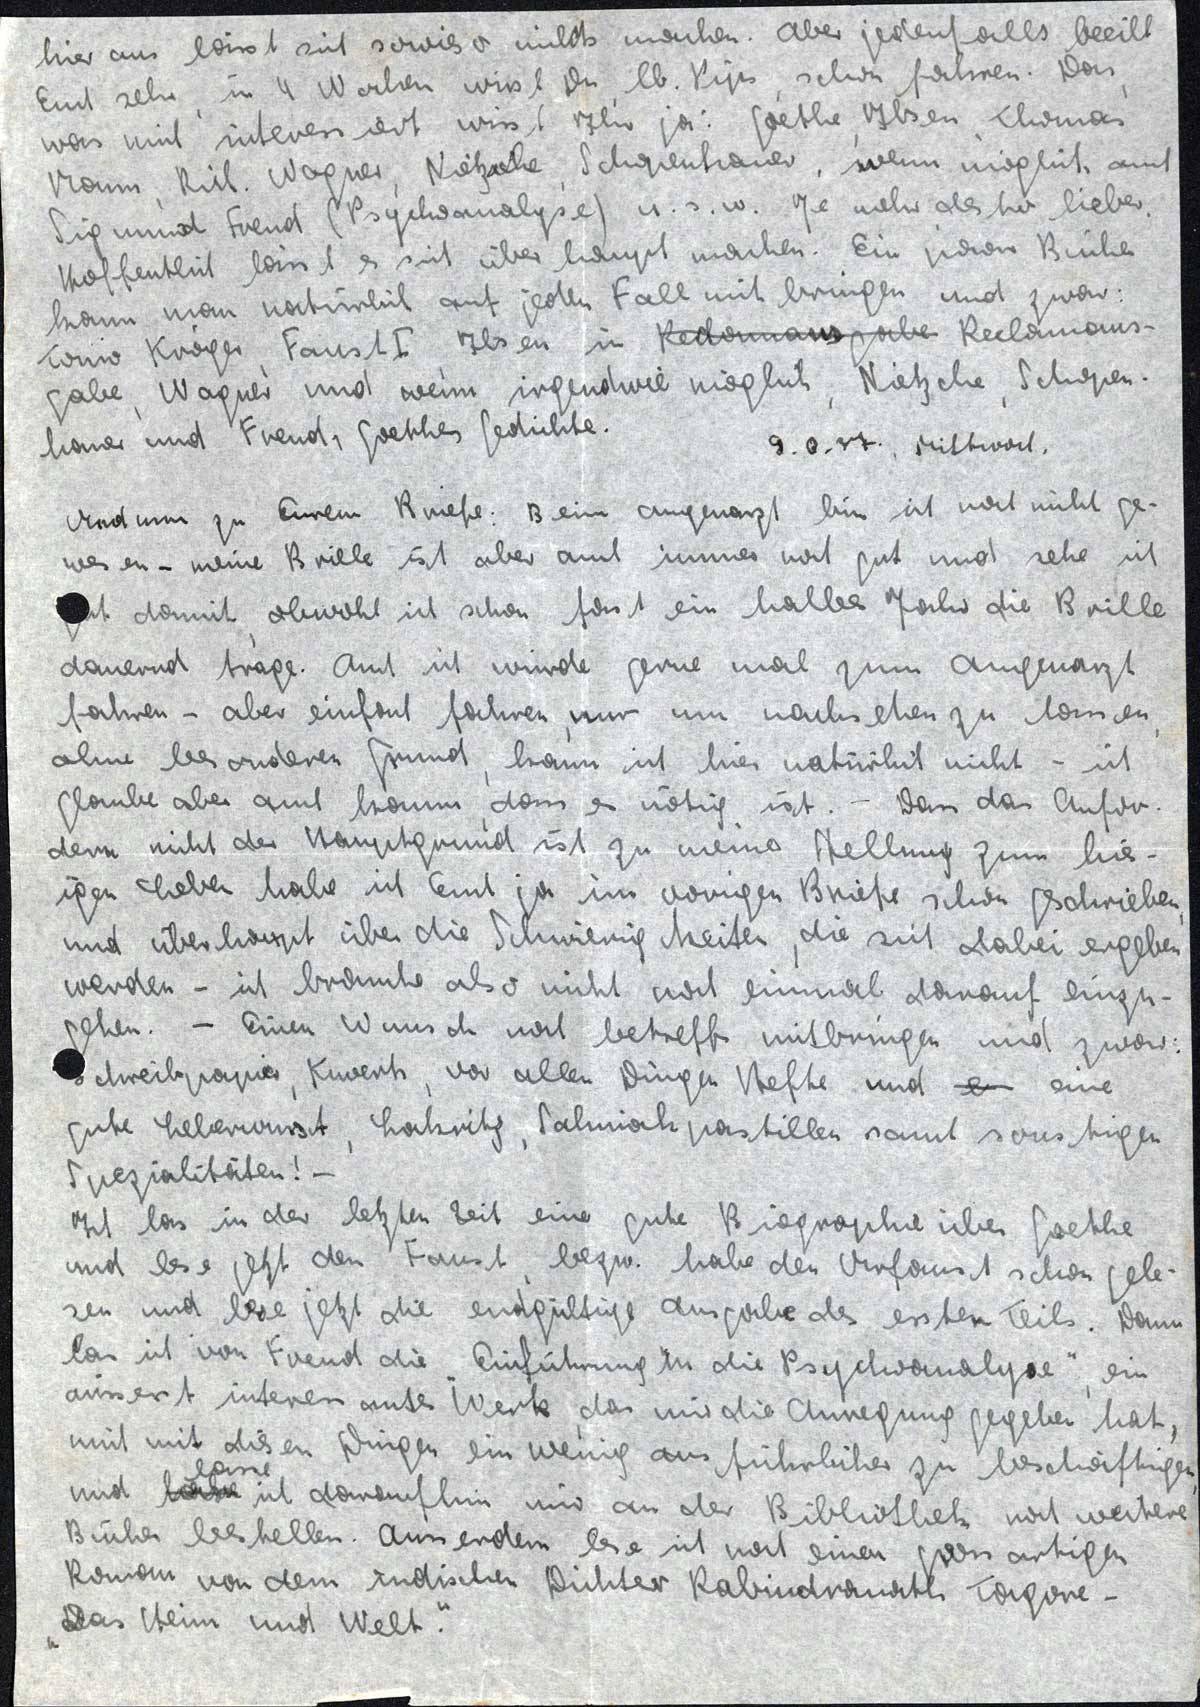 hier aus lässt sich sowieso nichts machen. Aber jedenfalls beeilt
Euch sehr, in 4 Wochen wirst Du, lb. Pips, schon fahren. Das,
was mich interessiert wisst Ihr ja: Goethe, Ibsen, Thomas
Mann, Rich. Wagner, Nietzsche, Schopenhauer, wenn möglich auch
Sigmund Freud (Psychoanalyse) u.s.w. Je mehr desto lieber.
Hoffentlich lässt es sich überhaupt machen. Ein paar Bücher
kann man natürlich auf jeden Fall mitbringen und zwar:
Tonio Kröger, Faust I Ibsen in Reclamausgabe Reclamaus-
gabe, Wagner und wenn irgendwie möglich, Nietzche, Schopen-
hauer und Freud, Goethes Gedichte.
Mittwoch.
Und nun zu Eurem Briefe: Beim Augenarzt bin ich noch nicht ge-
wesen – meine Brille ist aber auch immer noch gut und sehe ich
gut damit, obwohl ich schon fast ein halbes Jahr die Brille
dauernd trage. Auch ich würde gerne mal zum Augenarzt
fahren – aber einfach fahren, nur um nachsehen zu lassen,
ohne besonderen Grund, kann ich hier natürlich nicht – ich
glaube aber auch kaum, dass es nötig ist. – Dass das Anfor-
dern nicht der Hauptgrund ist zu meiner Stellung zum hie-
igen Leben habe ich Euch ja im vorigen Briefe schon geschrieben,
und überhaupt über die Schwierigkeiten, die sich dabei ergeben
werden – ich brauche also nicht noch einmal darauf einzu-
gehen. – Einen Wunsch noch betreffs mitbringen und zwar:
Schreibpapier, Kuverts, vor allen Dingen Hefte und eine
gute Leberwurst, Lakritz, Salmiakpastillen samt sonstigen
Spezialitäten! –
Ich las in der letzten Zeit eine gute Biographie über Goethe
und lese jetzt den Faust, bezw. habe den Urfaust schon gele-
sen und lese jetzt die endgültige Ausgabe des ersten Teils. Dann
las ich von Freud die "Einführung in die Psychoanalyse", ein
äussert interessantes Werk das mir die Anregung gegeben hat,
mich mit diesen Dingen ein wenig ausführlicher zu beschäftigen,
und lasse ich daraufhin mir an der Bibliothek noch weitere
Bücher bestellen. Ausserdem lese ich noch einen grossartigen
Roman von dem indischen Dichter Rabindranath Tagore –
„Das Heim und Welt."